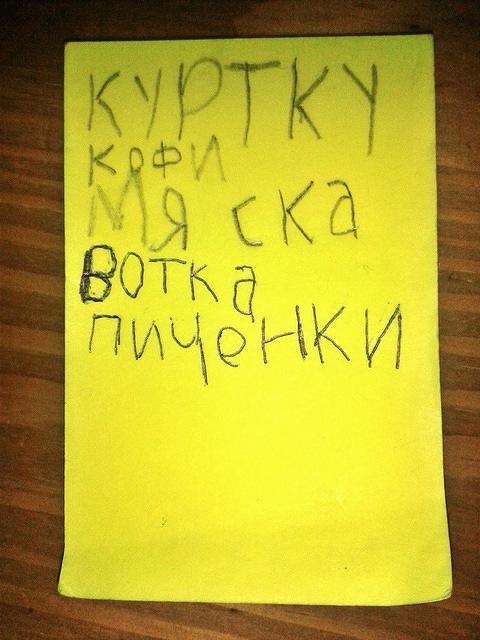 КУРТКУ
кофи
Мя ска
Вотка
пиченки